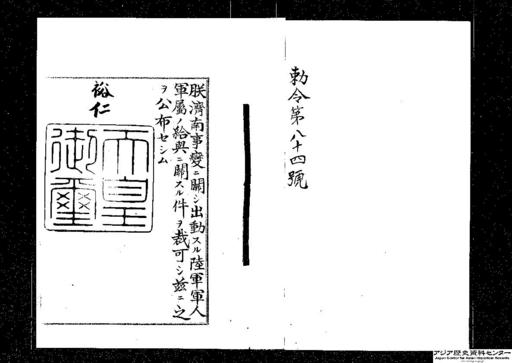 勅令第八十四號
朕濟南事變ニ關シ出動スル陸軍軍人
軍屬ノ給與ニ關スル件ヲ裁可シ玆ニ之
ヲ公布セシム
裕仁
天皇
御璽
アジア歴史資料センター
Japan Center for Asian Historical Records